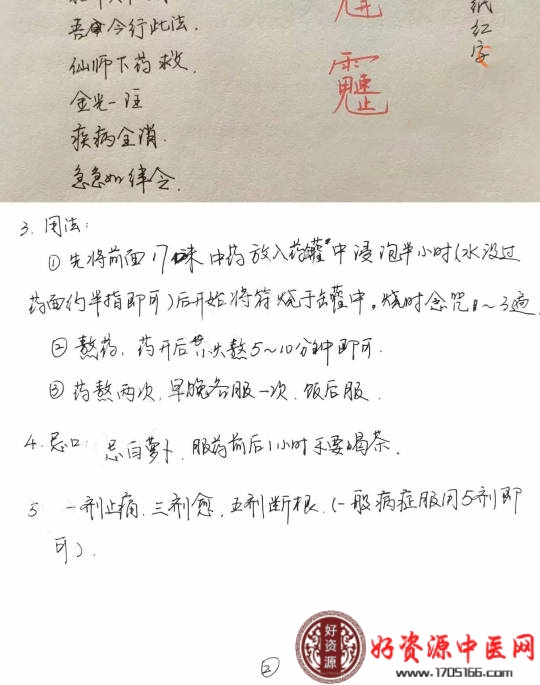 吾今行此法.
仙师下药救.
金光一注
疾病全消.
急急如律令.
纸红字
3. 用法:
① 先将前面17味中药放入药罐中浸泡半小时(水没过
药面约半指即可)后开始将符烧于去罐中,烧时念咒1~3遍
② 熬药,药开后熬5~10分钟即可.
③ 药熬两次,早晚各服一次,饭后服.
4. 忌口: 忌白萝卜,服药前后1小时不要喝茶.
5 一剂止痛,三剂愈,五剂断根,(一般病症服用5剂即
可).
②
好资源
好资源中医网
www.1705166.com